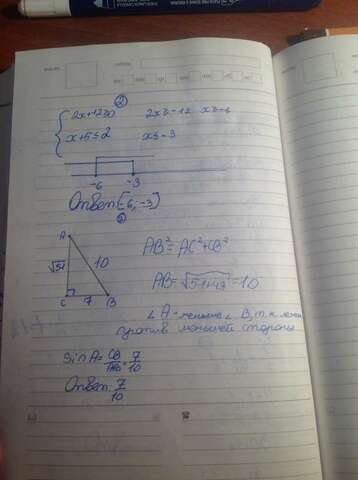 ②
{ 2x+12≥0   2x≥-12   x≥-6
{ x+5≤2   x≤-3
-6   -3
Ответ[-6;-3]
A
√51   10
C   7   B
AB²=AC²+CB²
AB=√51+49=10
∠A-меньше ∠B, т.к лежит
против меньшей стороны
sin A=CB/AB=7/10
Ответ: 7/10